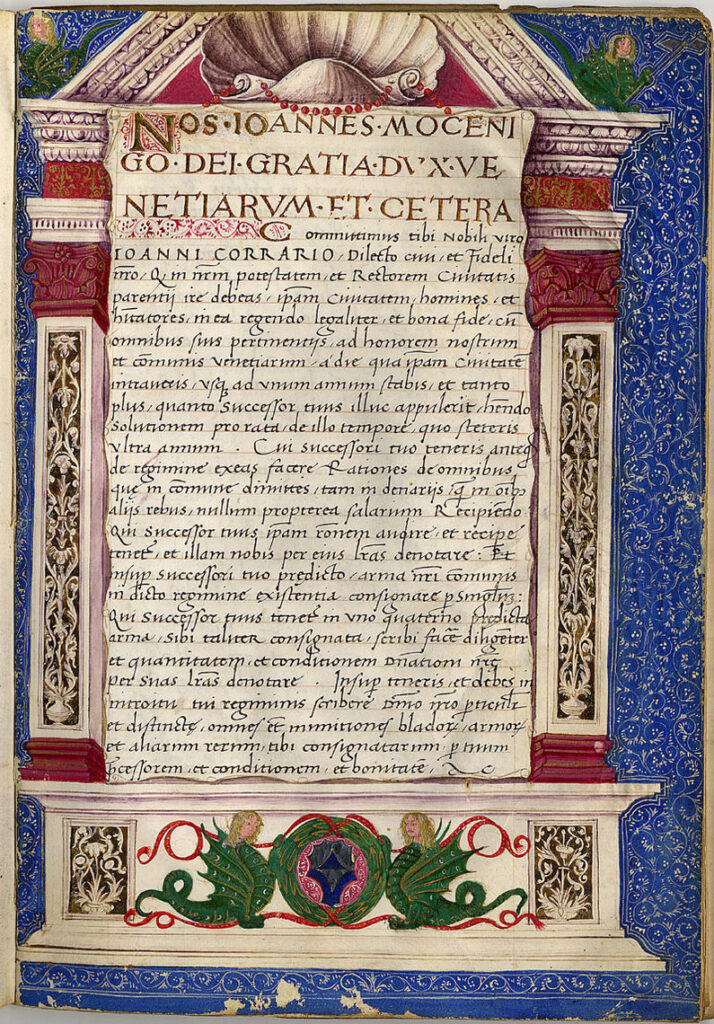 NOS·IOANNES·MOCENI
GO·DEI·GRATIA·DVX·VE
NETIARVM·ET·CETERA
Committimus tibi Nobili viro
IOANNI CORRARIO, Dilecto civi, et Fideli
nr̃o, Q̃ in nr̃m potestatem, et Rectorem Civitatis
parentii ire debeas, ip̃am Civitatem, homines, et
hĩtatores, in ea regendo legaliter, et bona fide, cũ
omnibus suis pertinentijs, ad honorem nostrum
et cõmunis venetiarum, a die qua ip̃am Civitatẽ
intraveris, usq̃ ad unum annum stabis, et tanto
plus, quanto Successor tuus illuc appulerit, hẽndo
Solutionem pro rata, de illo tempore, quo steteris
ultra annum. Cui Successori tuo teneris anteq̃
de regimine exeas facere Rationes de omnibus,
que in cõmune dimittes, tam in denarijs, q̃ in oĩb9
alijs rebus, nullum propterea salarium Recipiẽdo
Qui Successor tuus ipsam rõnem audire, et recipe
tenet̃, et illam nobis per eius lr̃as denotare: Et
insup̃ Successori tuo predicto, arma nr̃i cõmunis
in dicto regimine existentia consignare p̃ Singulũ:
Qui Successor tuus tenet̃ in uno quaterno predicta
arma, Sibi taliter consignata, scribi facẽ diligẽter
et quantitatem, et conditionem Dñationi nr̃ẽ
per Suas lr̃as denotare. Insup̃ teneris, et debes in
introitu tui regiminis scribere dñio nr̃o p̃ticulr̃
et distincte, omnes et munitiones bladoꝝ, armoꝝ
et aliarum rerum, tibi consignatarum, p̃ tuum
p̃cessorem, et conditionem, et bonitatẽ, &c